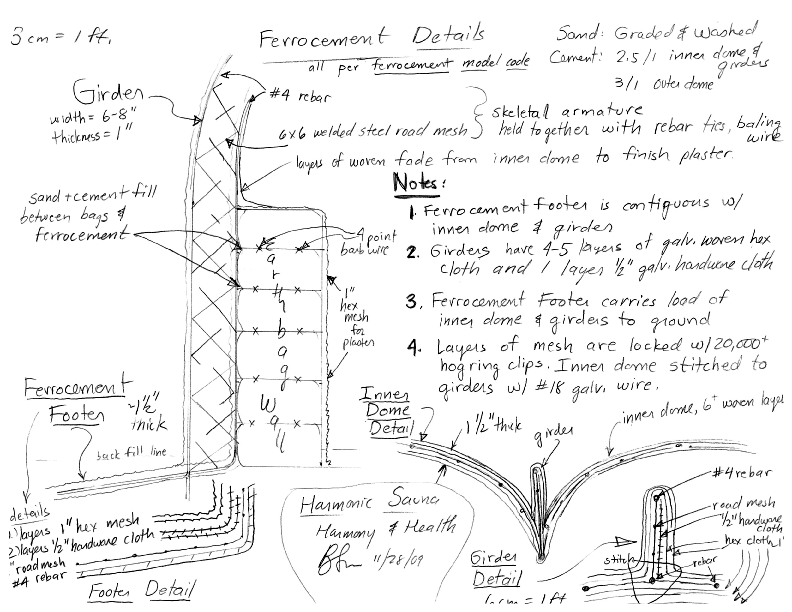 3cm = 1 ft.
Ferrocement Details
all per ferrocement model code
Sand: Graded & Washed
Cement: 2.5/1 inner dome &
girders
3/1 outer dome
Girder
width = 6-8"
thickness = 1"
#4 rebar
6x6 welded steel road mesh
skeletal armature
held together with rebar ties, baling
wire
layers of woven fade from inner dome to finish plaster.
sand + cement fill
between bags &
ferrocement
4 point
barb wire
Earthbag Wall
1"
hex
mesh
for
plaster
Notes:
1. Ferrocement footer is contiguous w/
inner dome & girders
2. Girders have 4-5 layers of galv. woven hex
cloth and 1 layer 1/2" galv. hardware cloth
3. Ferrocement Footer carries load of
inner dome & girders to ground
4. Layers of mesh are locked w/ 20,000+
hog ring clips. Inner dome stitched to
girders w/ #18 galv. wire.
Ferrocement
Footer
~1 1/2"
thick
back fill line
details
1) layers 1" hex mesh
2) layers 1/2" hardware cloth
" road mesh
#4 rebar
Footer Detail
Inner
Dome
Detail
1 1/2" thick
girder
inner dome, 6+ woven layer
Harmonic Sauna
Harmony & Health
11/28/09
Girder
Detail
cm = 1 ft
#4 rebar
road mesh
1/2" hardware
cloth
hex cloth 1"
stitch
rebar